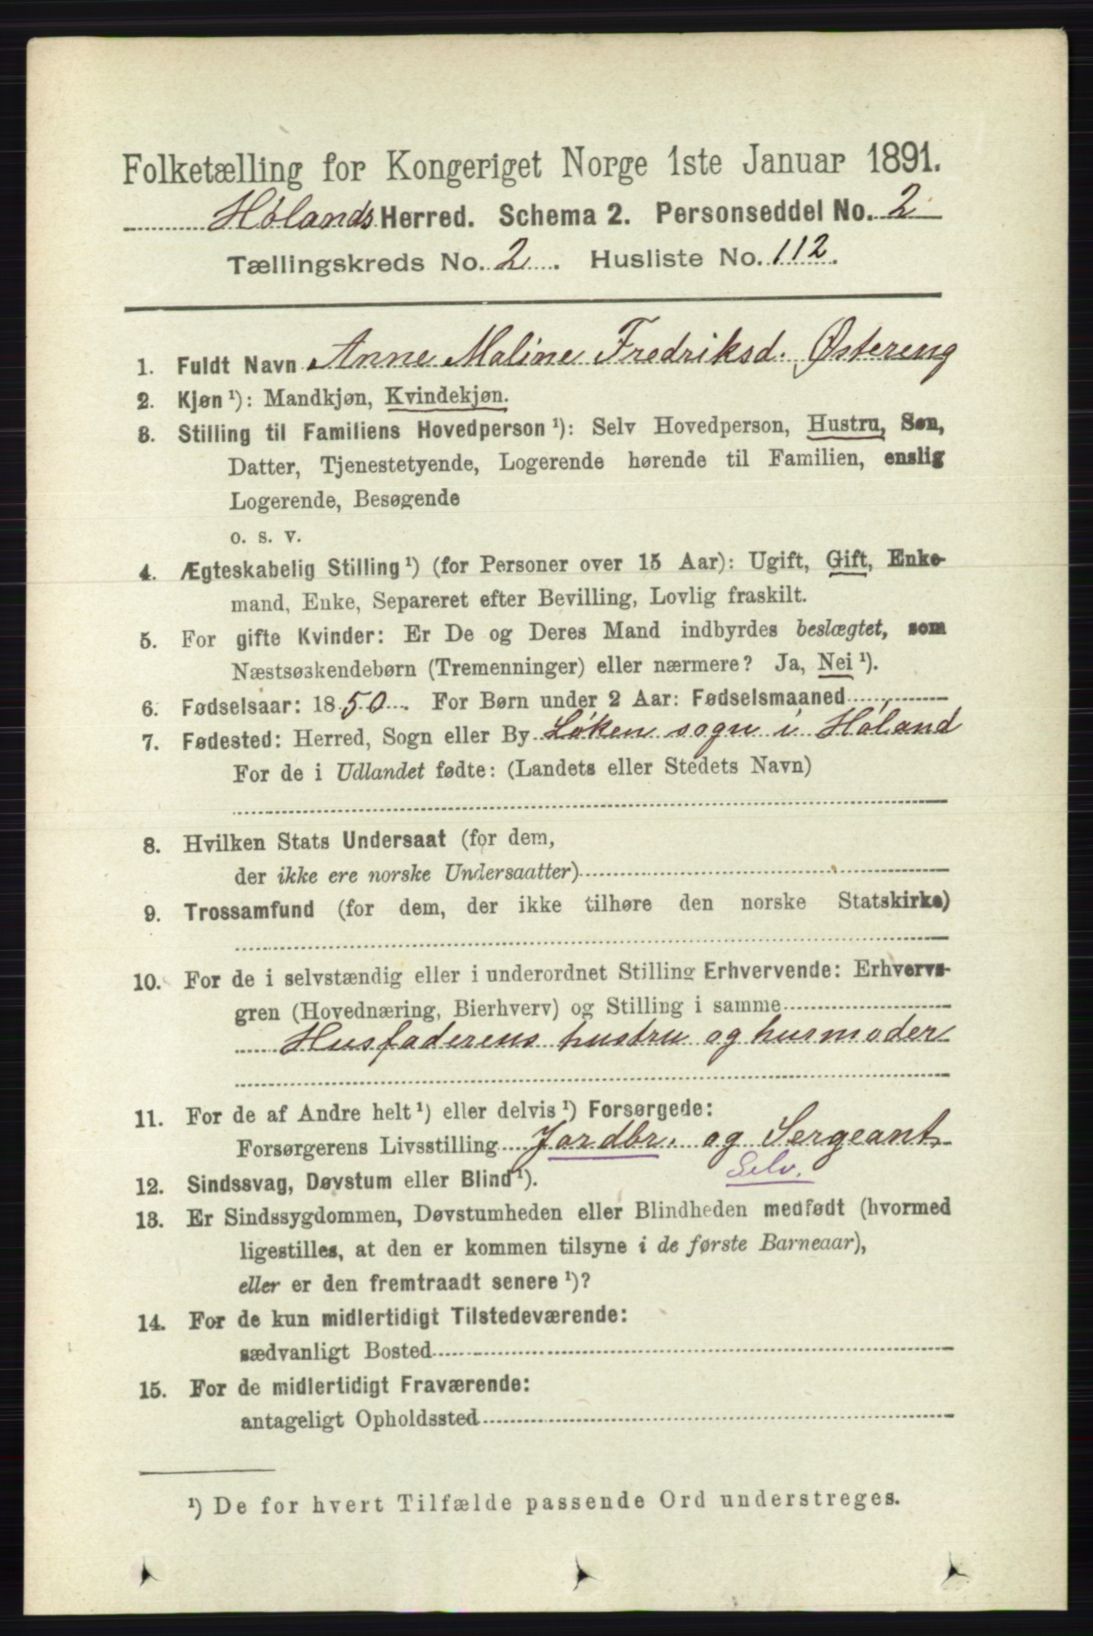 Folketælling for Kongeriget Norge 1ste Januar 1891.
Hølands Herred. Schema 2. Personseddel No. 2
Tællingskreds No. 2. Husliste No. 112.
1. Fuldt Navn Anne Maline Fredriksd. Østereng
2. Kjøn ¹): Mandkjøn, Kvindekjøn.
3. Stilling til Familiens Hovedperson ¹): Selv Hovedperson, Hustru, Søn,
Datter, Tjenestetyende, Logerende hørende til Familien, enslig
Logerende, Besøgende
o. s. v.
4. Ægteskabelig Stilling ¹) (for Personer over 15 Aar): Ugift, Gift, Enke-
mand, Enke, Separeret efter Bevilling, Lovlig fraskilt.
5. For gifte Kvinder: Er De og Deres Mand indbyrdes beslægtet, som
Næstsøskendebørn (Tremenninger) eller nærmere? Ja, Nei ¹).
6. Fødselsaar: 1850. For Børn under 2 Aar: Fødselsmaaned
7. Fødested: Herred, Sogn eller By Løken sogn i Høland
For de i Udlandet fødte: (Landets eller Stedets Navn)
8. Hvilken Stats Undersaat (for dem,
der ikke ere norske Undersaatter)
9. Trossamfund (for dem, der ikke tilhøre den norske Statskirke)
10. For de i selvstændig eller i underordnet Stilling Erhvervende: Erhvervs-
gren (Hovednæring, Bierhverv) og Stilling i samme
Husfaderens hustru og husmoder
11. For de af Andre helt ¹) eller delvis ¹) Forsørgede:
Forsørgerens Livsstilling Jordbr. og Sergeant
Selv.
12. Sindssvag, Døvstum eller Blind ¹).
13. Er Sindssygdommen, Døvstumheden eller Blindheden medfødt (hvormed
ligestilles, at den er kommen tilsyne i de første Barneaar),
eller er den fremtraadt senere ¹)?
14. For de kun midlertidigt Tilstedeværende:
sædvanligt Bosted
15. For de midlertidigt Fraværende:
antageligt Opholdssted
¹) De for hvert Tilfælde passende Ord understreges.